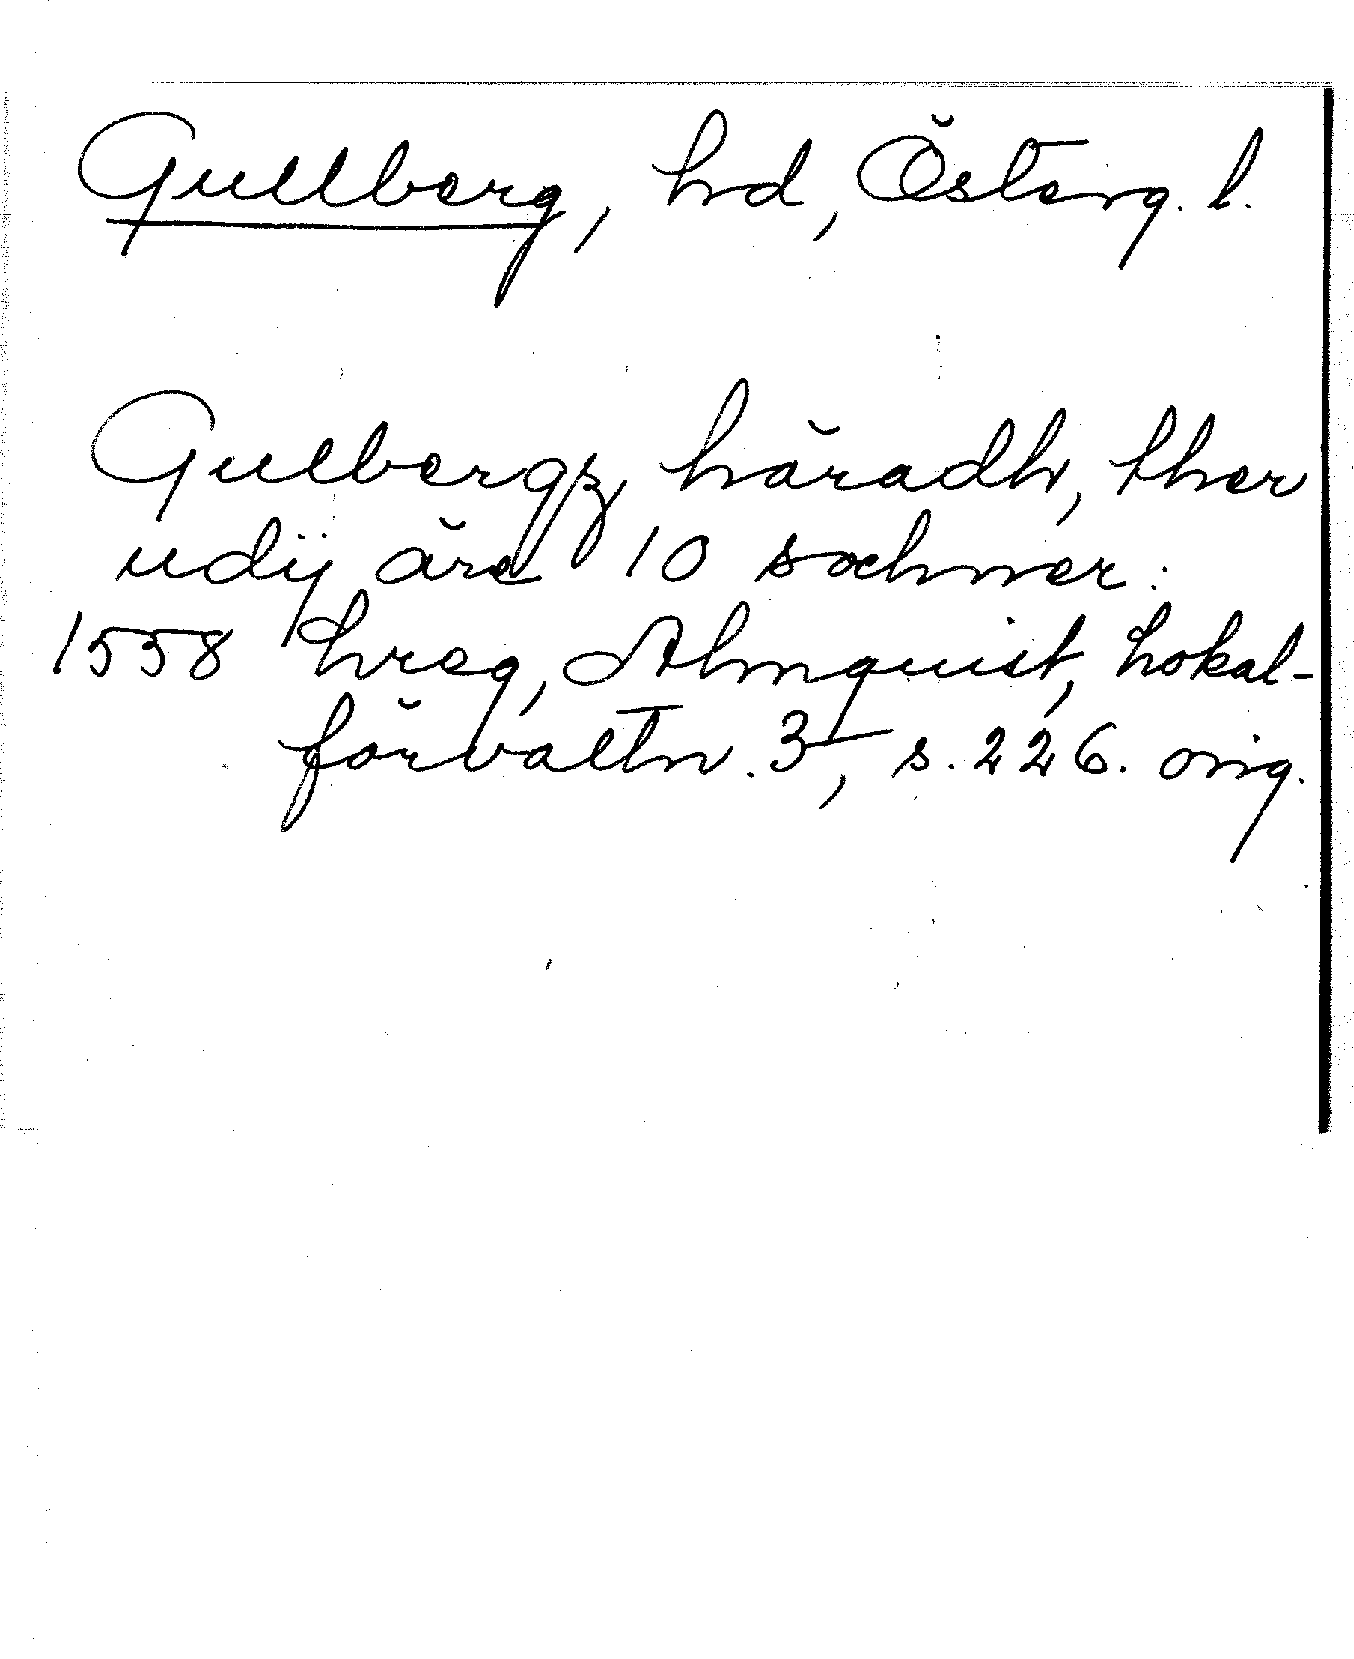 Gullberg, hd, Österg. l.
Gulbergz häradh, ther
udij äre 10 sochner.
1558 hreg, Almquist, Lokal-
förvaltn. 3, s. 226. orig.